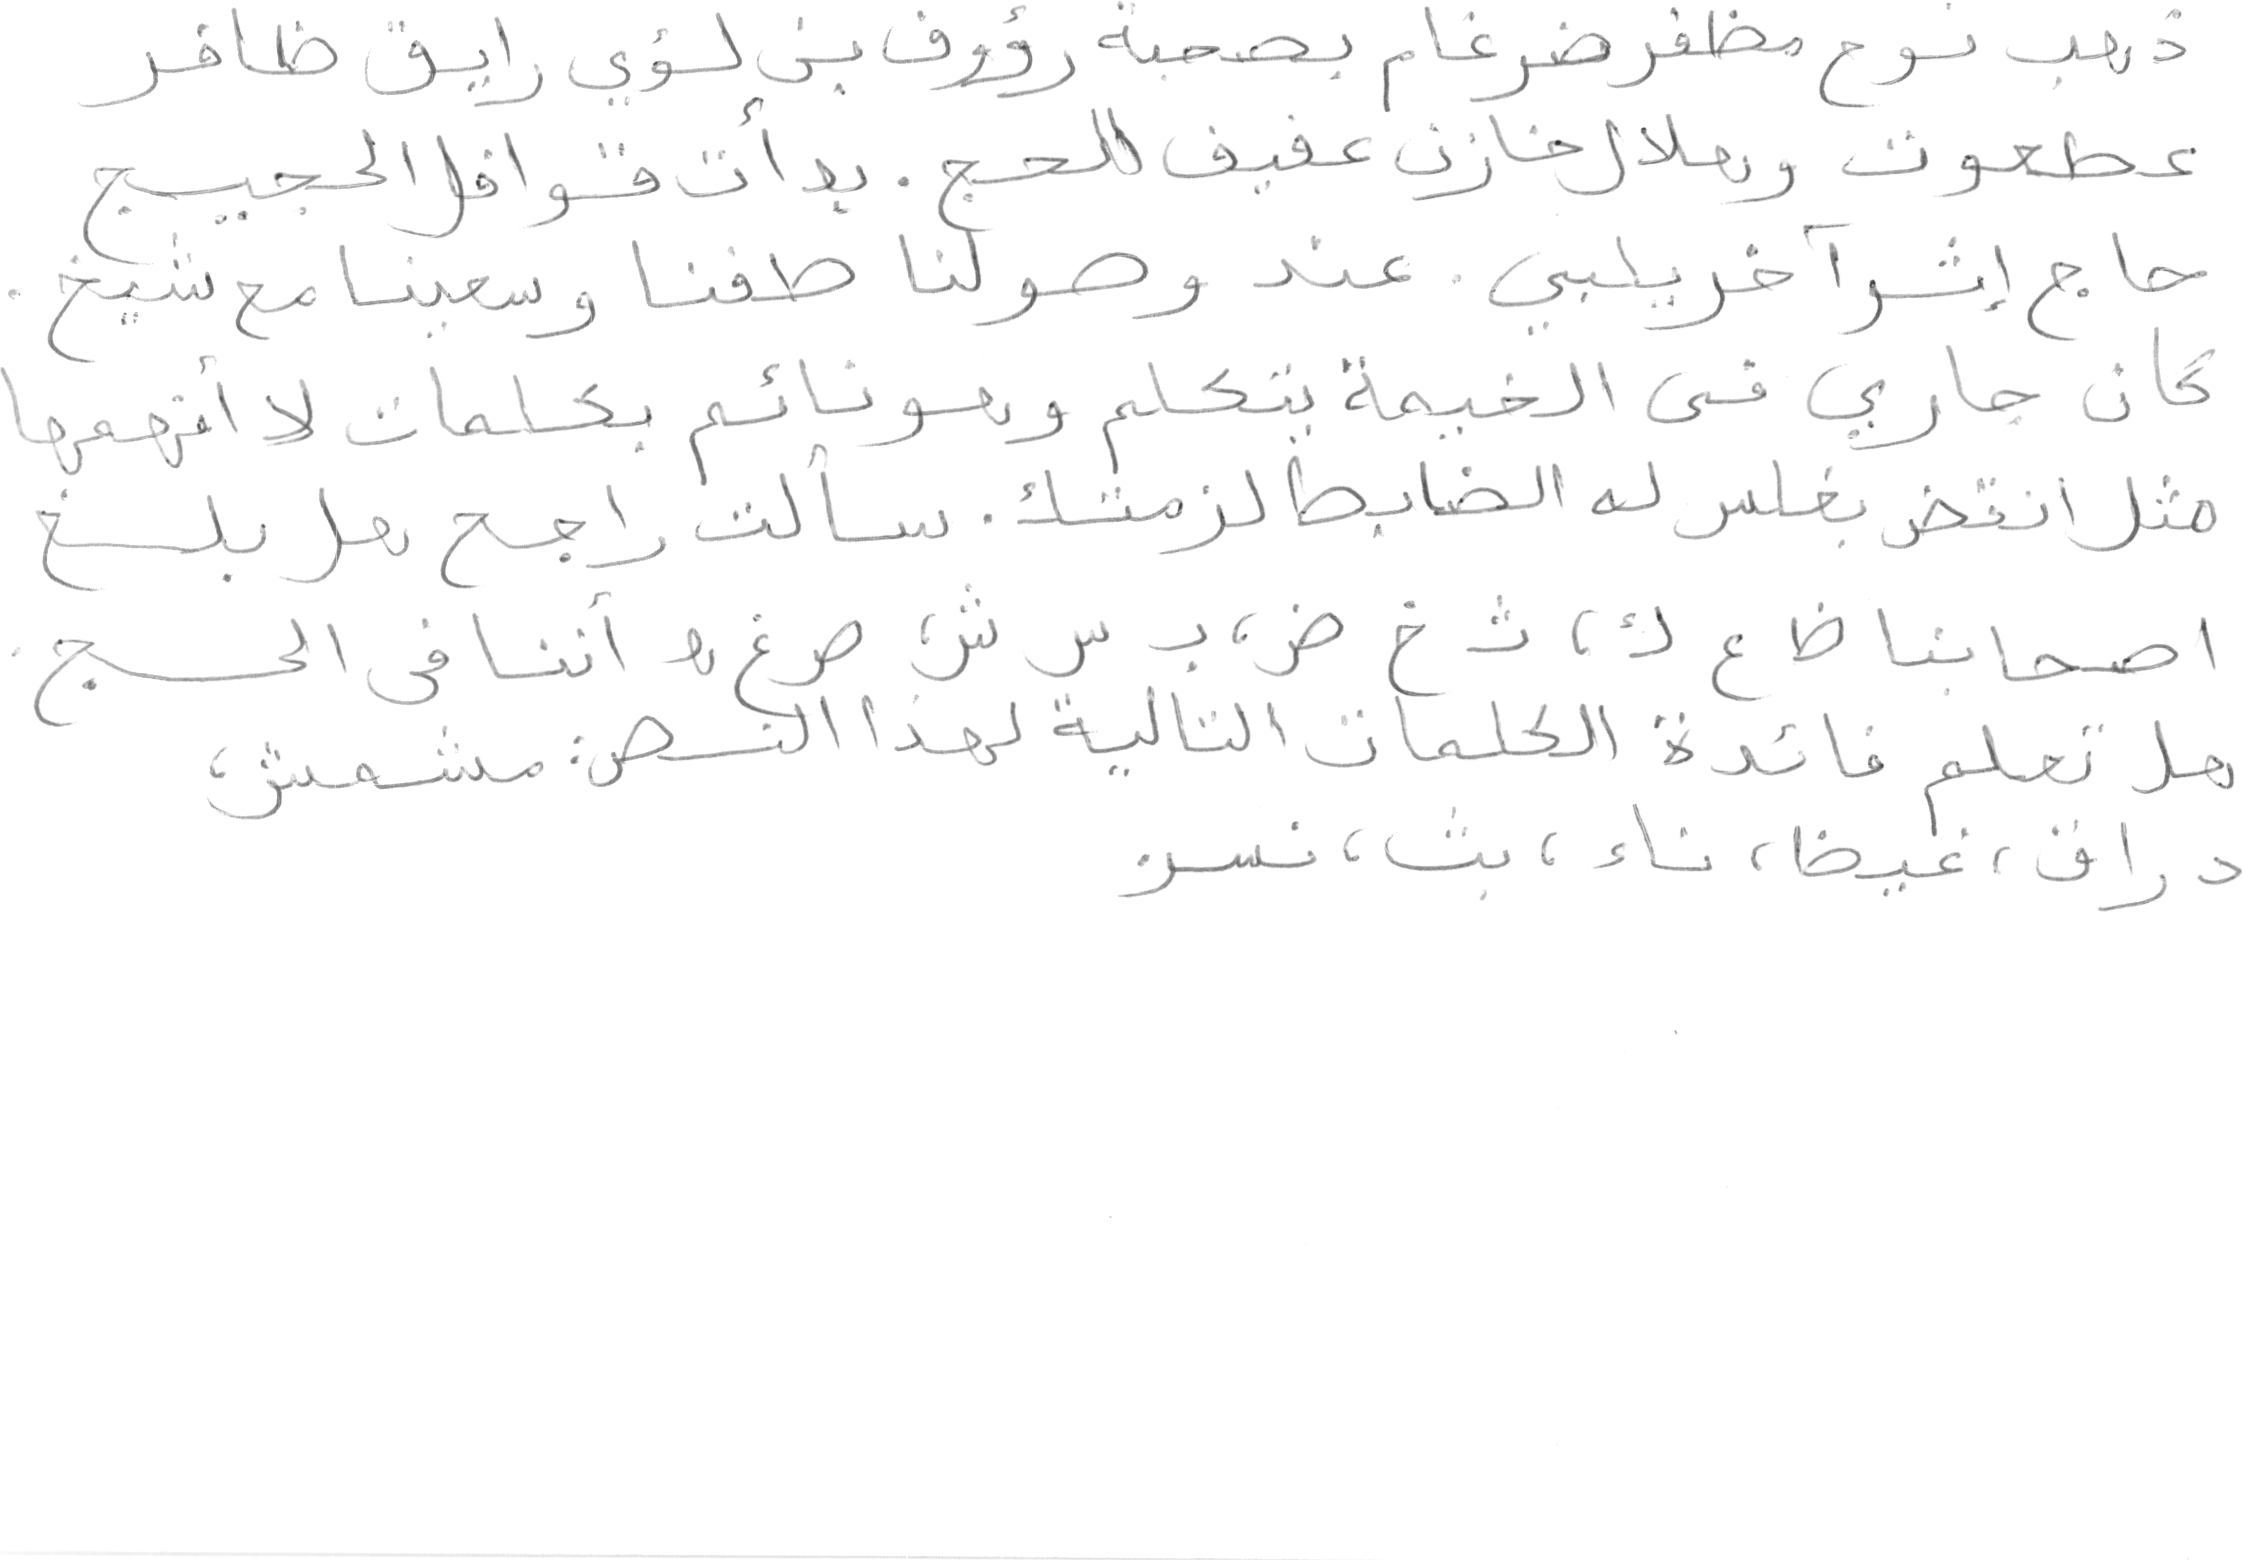 ذهب نوح مظفر ضرغام بصحبة رؤوف بن لؤي رايق ظافر
عطعوت وهلال خازن عفيف للحج. بدأت قوافل الحجيج
حاج إثر آخر يلبي. عند وصولنا طفنا وسعينا مع شيخ.
كان جاري في الخيمة يتكلم وهو نائم بكلمات لا أفهمها
مثل انتخض بغلس له الضابط لزمتك. سألت راجح هل بلغ
اصحابنا ظ ع ك، ث خ ض، ب س ش، ص غ ه أننا في الحج.
هل تعلم فائدة الكلمات التالية لهذا النص: مشمش،
دراق، غيظ، ناء، بث، نسر.